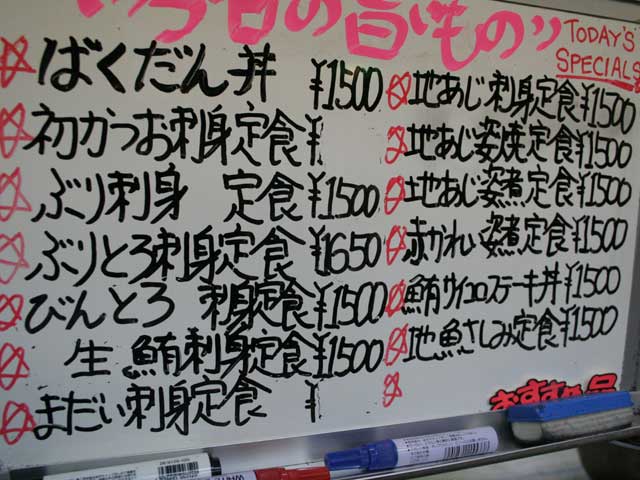 今日の旨いもの
TODAY'S
SPECIALS
ばくだん丼 ¥1500
初かつお刺身定食 ¥
ぶり刺身 定食 ¥1500
ぶりとろ刺身定食 ¥1650
びんとろ 刺身定食 ¥1500
生 鮪刺身定食 ¥1500
まだい刺身定食 ¥
地あじ刺身定食 ¥1500
地あじ姿焼定食 ¥1500
地あじ姿煮定食 ¥1500
赤かれい姿煮定食 ¥1500
鮪サイコロステーキ丼 ¥1500
地魚さしみ定食 ¥1500
おすすめ品